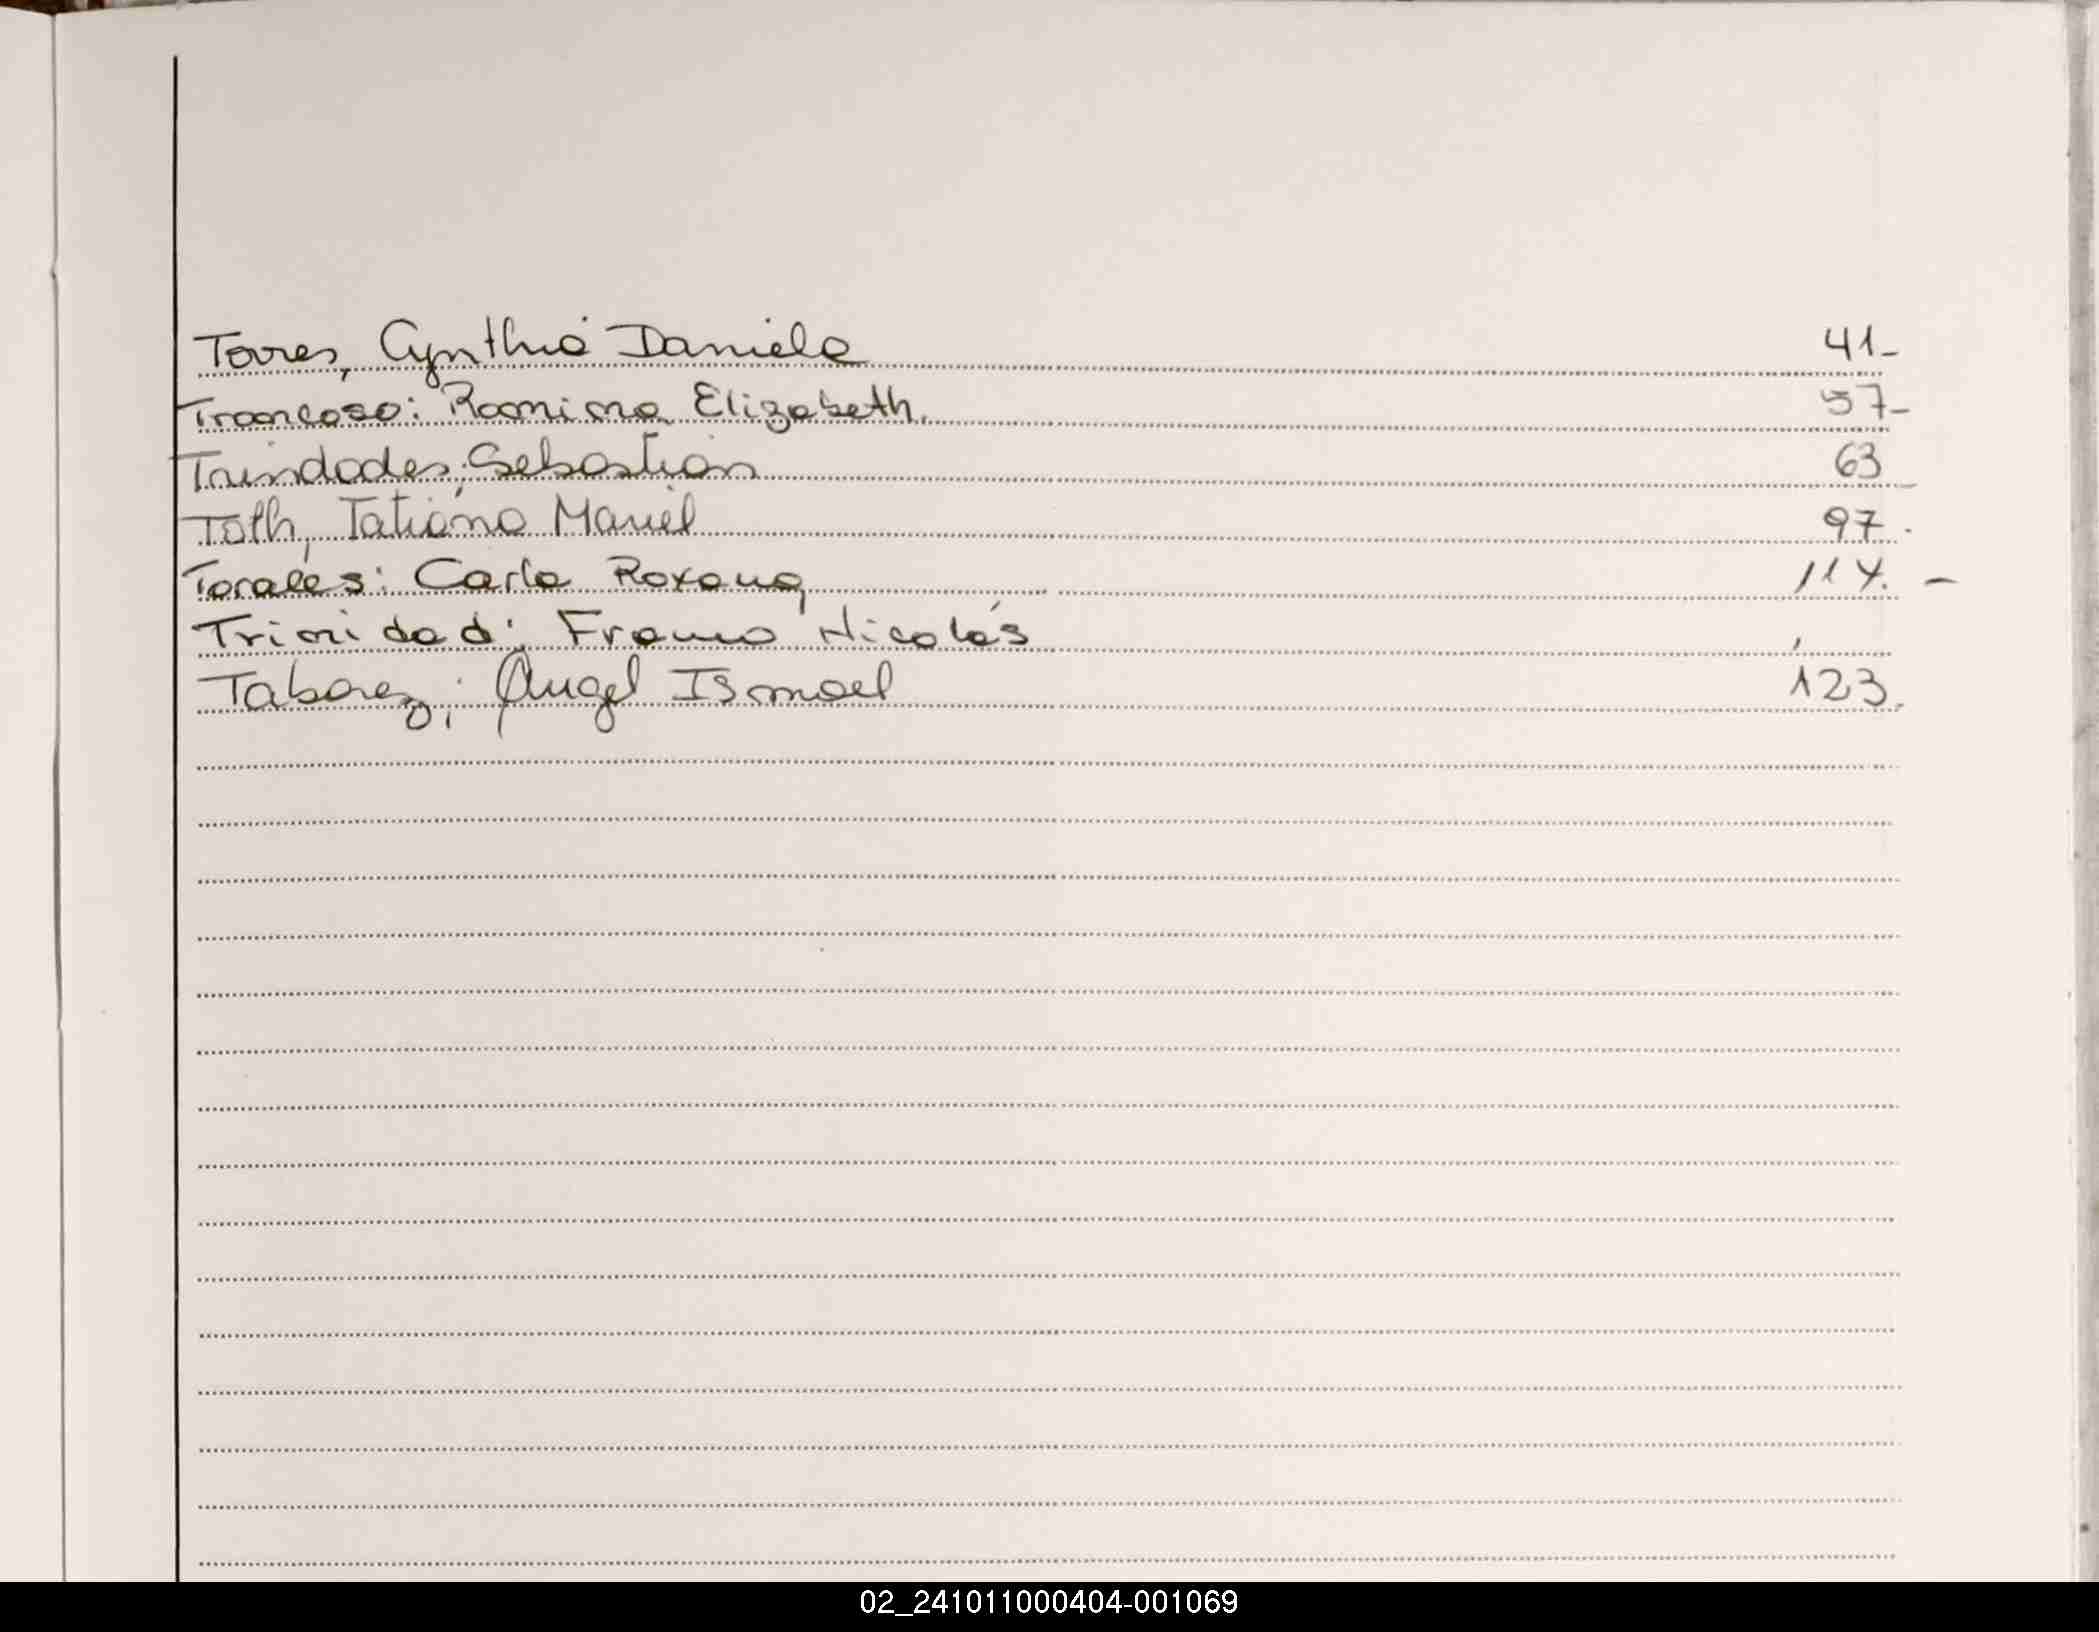 Torres, Cynthia Daniela 41-
Troncoso: Romina Elizabeth. 57-
Trindades; Sebastian 63
Toth, Tatiana Mariel 97.
Torales: Carla Roxana 114. -
Trinidad: Franco Nicolás
Taborez; Angel Ismael 123.
02_241011000404-001069